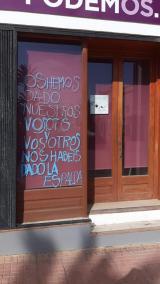 PODEMOS.
OS HEMOS
DADO
NUESTROS
VOTOS
Y
VOSOTROS
NOS HABEIS
DADO LA
ESPALDA